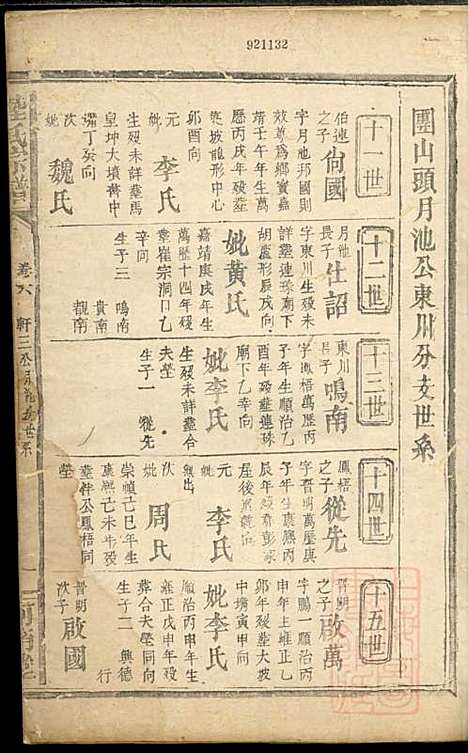 921132
團山頭月池公東川分支世系
十一世
伯連
之子
尙國
字月池邦國則
效尊爲鄉賓嘉
靖壬午年生萬
歷丙戌年殁塟
塟坡龍形中心
卯酉向
元
妣
李氏
生殁未詳塟馬
皇坤大墳嘴中
嘴丁癸向
次
妣
魏氏
十二世
月池
長子
仕詔
字東川生殁未
詳塟連珠廟下
胡盧形辰戌向
妣黃氏
嘉靖庚戌年生
萬歷十四年殁
塟崔宗洞口乙
辛向
生子三
鳴南
貴南
觀南
十三世
東川
長子
鳴南
字鳳梧萬歷丙
子年生順治乙
酉年殁塟連珠
廟下乙辛向
妣李氏
生殁未詳塟合
夫塋
生子一
從先
十四世
鳳梧
之子
從先
字晉明萬歷庚
子年生康熙丙
辰年殁塟
屋後
元
妣
李氏
無出
次
妣
周氏
崇禎己巳年生
康熙己未年殁
塟伴公鳳梧同
塋
十五世
晉明
之子
啟萬
字鵬一順治丙
申年生雍正乙
卯年殁塟大坡
中墳寅甲向
妣李氏
順治丙申年生
雍正戊申年殁
葬合夫塋同向
生子二
興德
行
晉明
次子
啟國
卷六
軒三公月池支世系